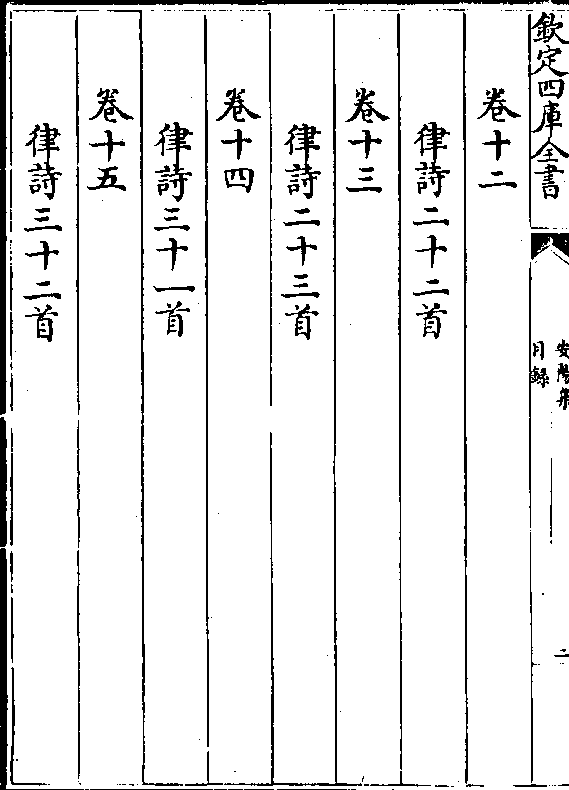 欽定四庫全書
安陽集
目錄
二
卷十二
律詩二十二首
卷十三
律詩二十三首
卷十四
律詩三十一首
卷十五
律詩三十二首